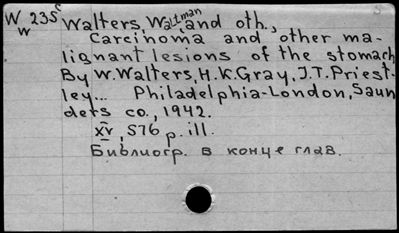 W 235c Walters, Waltman and oth.,
w Carcinoma and other ma-
lignant lesions of the stomach
By W. Walters, H.K. Gray, J.T. Priest-
ley... Philadelphia-London, Saun
ders co., 1942.
XV, 576 p. ill.
Библиогр. в конце глав.